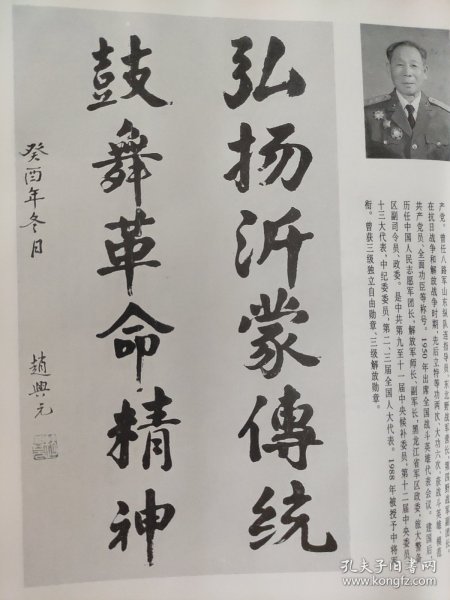 弘扬沂蒙傳統
鼓舞革命精神
癸酉年冬月
趙興元
产党。曾任八路军山东纵队连指导员，东北野战军营长，第四野战军副团长。
在抗日战争和解放战争时期，先后立特等功两次、大功六次，获战斗英雄、模范
共产党员、全面功臣等称号。1950年出席全国战斗英雄代表会议。建国后，
历任中国人民志愿军团长，解放军师长、副军长，黑龙江省军区政委，旅大警备
区副司令员、政委。是中共第九至十一届中央候补委员，第十二届中央委员，
十三大代表，中纪委委员，第二、三届全国人大代表。1988年被授予中将军
衔。曾获三级独立自由勋章、三级解放勋章。
孔夫子旧书网